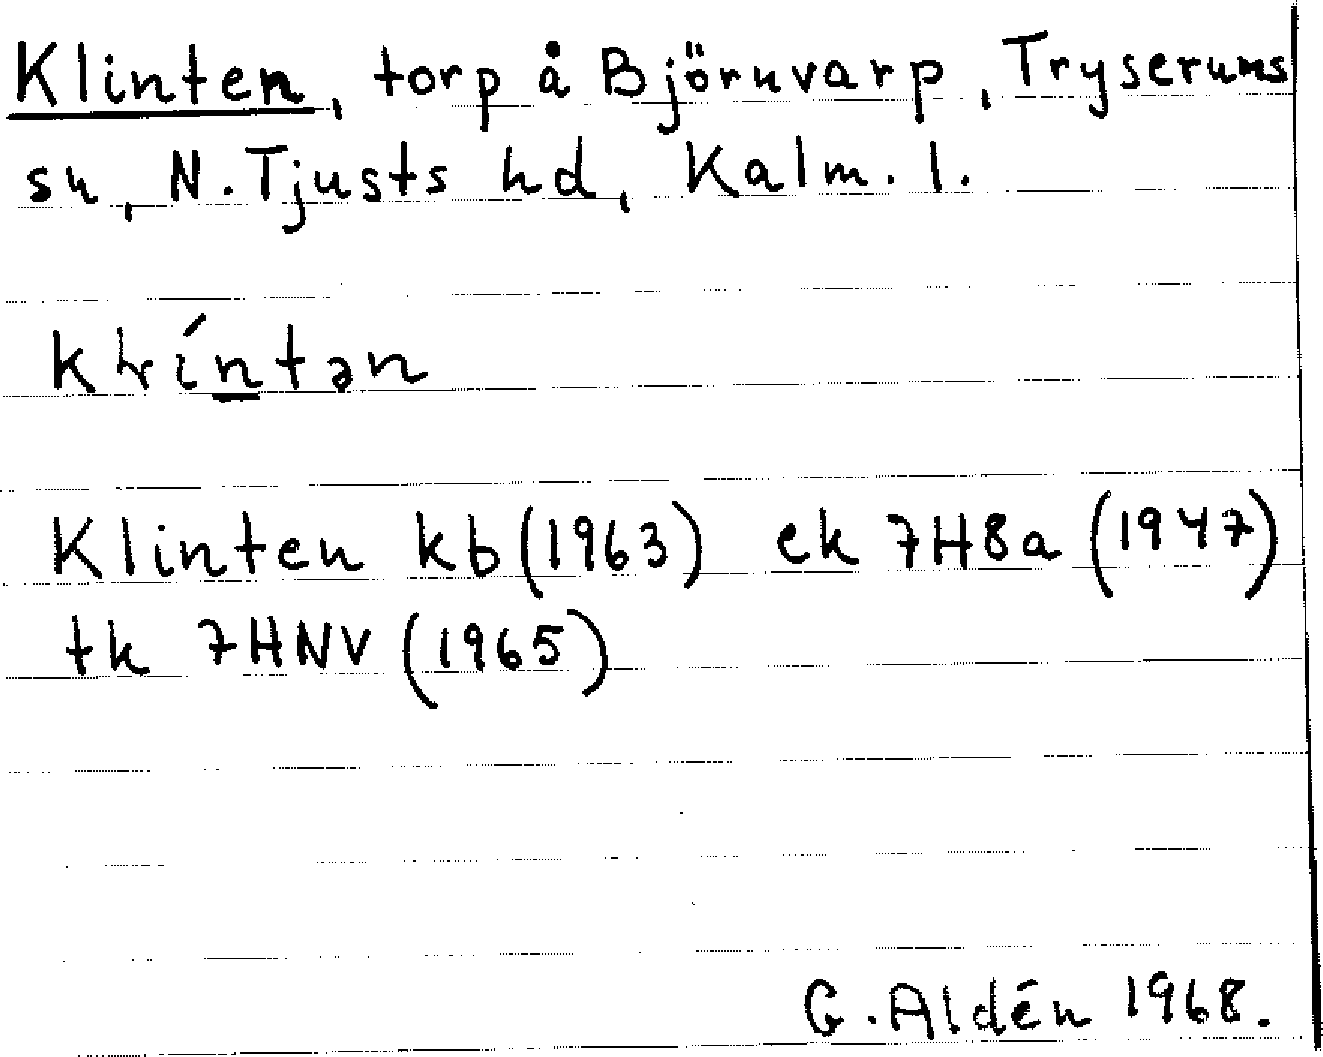 Klinten, torp å Björnvarp, Tryserums
sn, N. Tjusts hd, Kalm. l.
Klinten kb (1963) ek 7H8a (1947)
tk 7HNV (1965)
G. Aldén 1968.